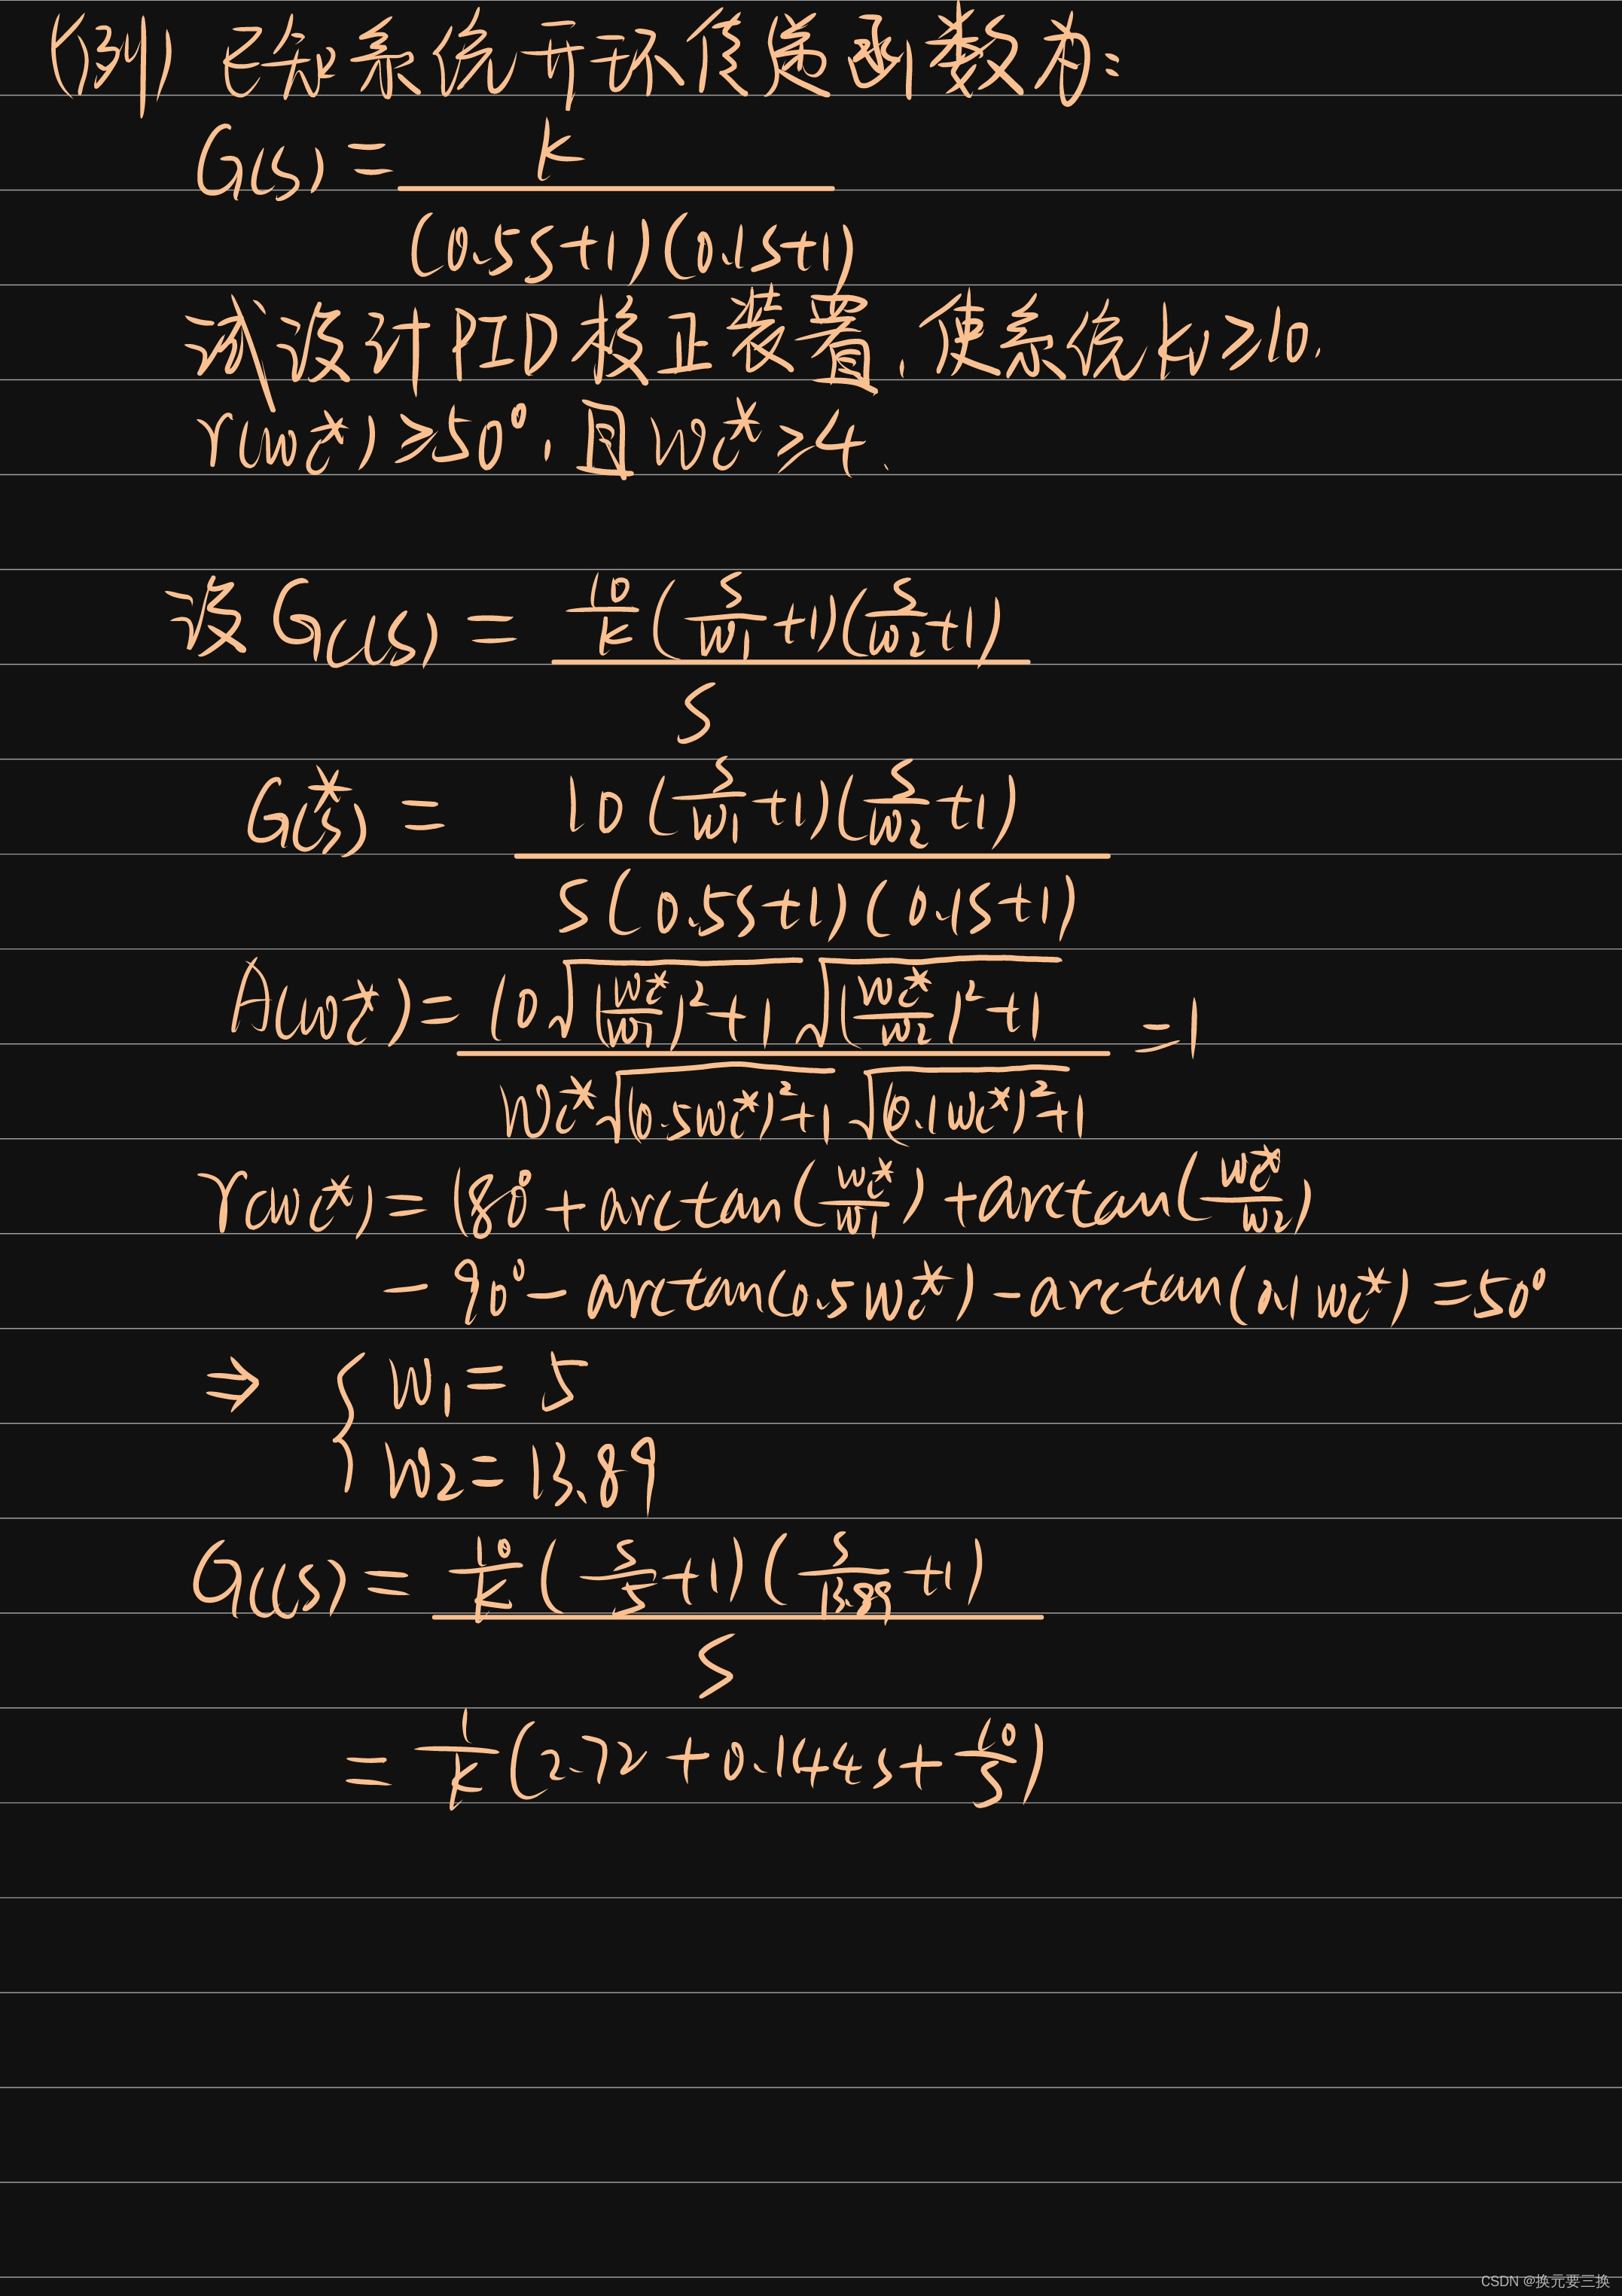 (例) 已知系统开环传递函数为:
G(s) = K / (0.5s+1)(0.1s+1)
试设计PID校正装置,使系统Kv≥10,
γ(wc*)≥50°,且wc*≥4.
设 Gc(s) = 10/K (s/w1 +1)(s/w2 +1) / s
G*(s) = 10(s/w1 +1)(s/w2 +1) / s(0.5s+1)(0.1s+1)
A(wc*) = 10√((wc*/w1)²+1) √((wc*/w2)²+1) / wc*√((0.5wc*)²+1) √((0.1wc*)²+1) = 1
γ(wc*) = 180° + arctan(wc*/w1) + arctan(wc*/w2)
- 90° - arctan(0.5wc*) - arctan(0.1wc*) = 50°
⇒ { w1 = 5
w2 = 13.89
Gc(s) = 10/K (s/5 +1)(s/13.89 +1) / s
= 1/K (2.72 + 0.144s + 10/s)
CSDN @换元要三换